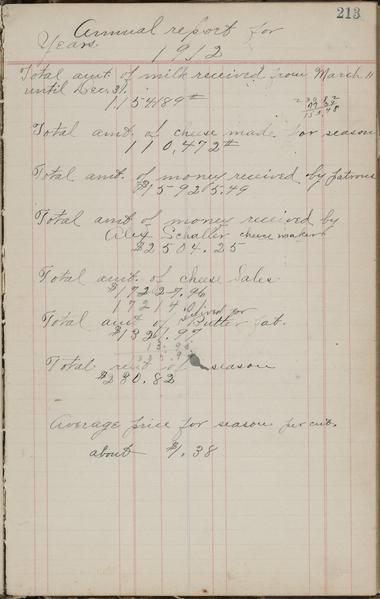 213
Annual report for
Years
1912
Total amt of milk received from March 11
until Dec. 31.
1,154,189#
Total amt. of cheese made for season
110,472#
Total amt. of money received by patrons
$15925.49
Total amt of money received by
Alex Schaller cheese maker
$2504.25
Total amt. of cheese Sales
$17227.96
1721
Total amt of received for Butter fat.
$1321.97
Total rent of season
$230.82
Average price for season per cwt.
about $1.38